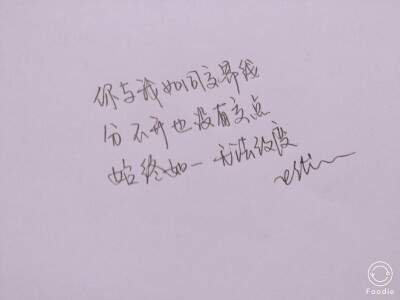 你与我如同交界线
分不开也没有交点
始终如一 无法改变
Foodie